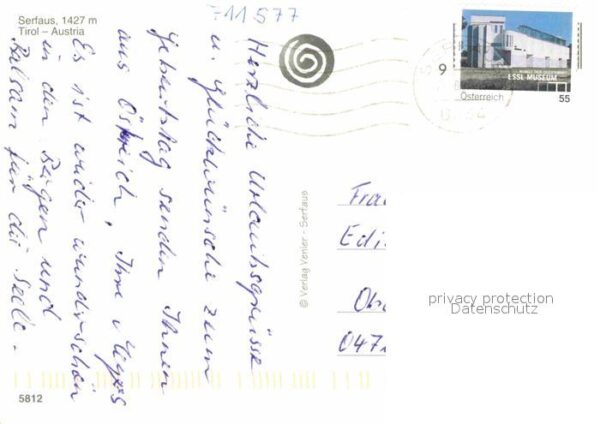 Serfaus, 1427 m
Tirol – Austria
711 577
Herzliche Urlaubsgrüsse
u. Glückwünsche zum
Geburtstag senden Ihnen
aus Östreich, Ihre
Es ist wieder wunderschön
in den Bergen und
Balsam für die Seele.
© Verlag Venier - Serfaus
9
ESSL MUSEUM
Österreich
55
Frau
Edi
privacy protection
Datenschutz
047
5812